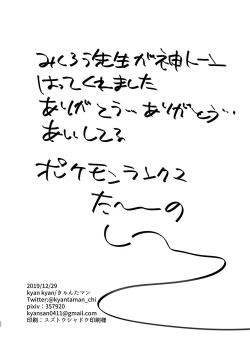 みくろう先生が神トーン
はってくれました
ありがとう…ありがとう…
あいしてる
ポケモンランクマ
た〜〜の
2019/12/29
kyan kyan/きゃんたマン
Twitter:@kyantaman_chi
pixiv：357920
kyansan0411@gmail.com
印刷：スズトウシャドウ印刷様